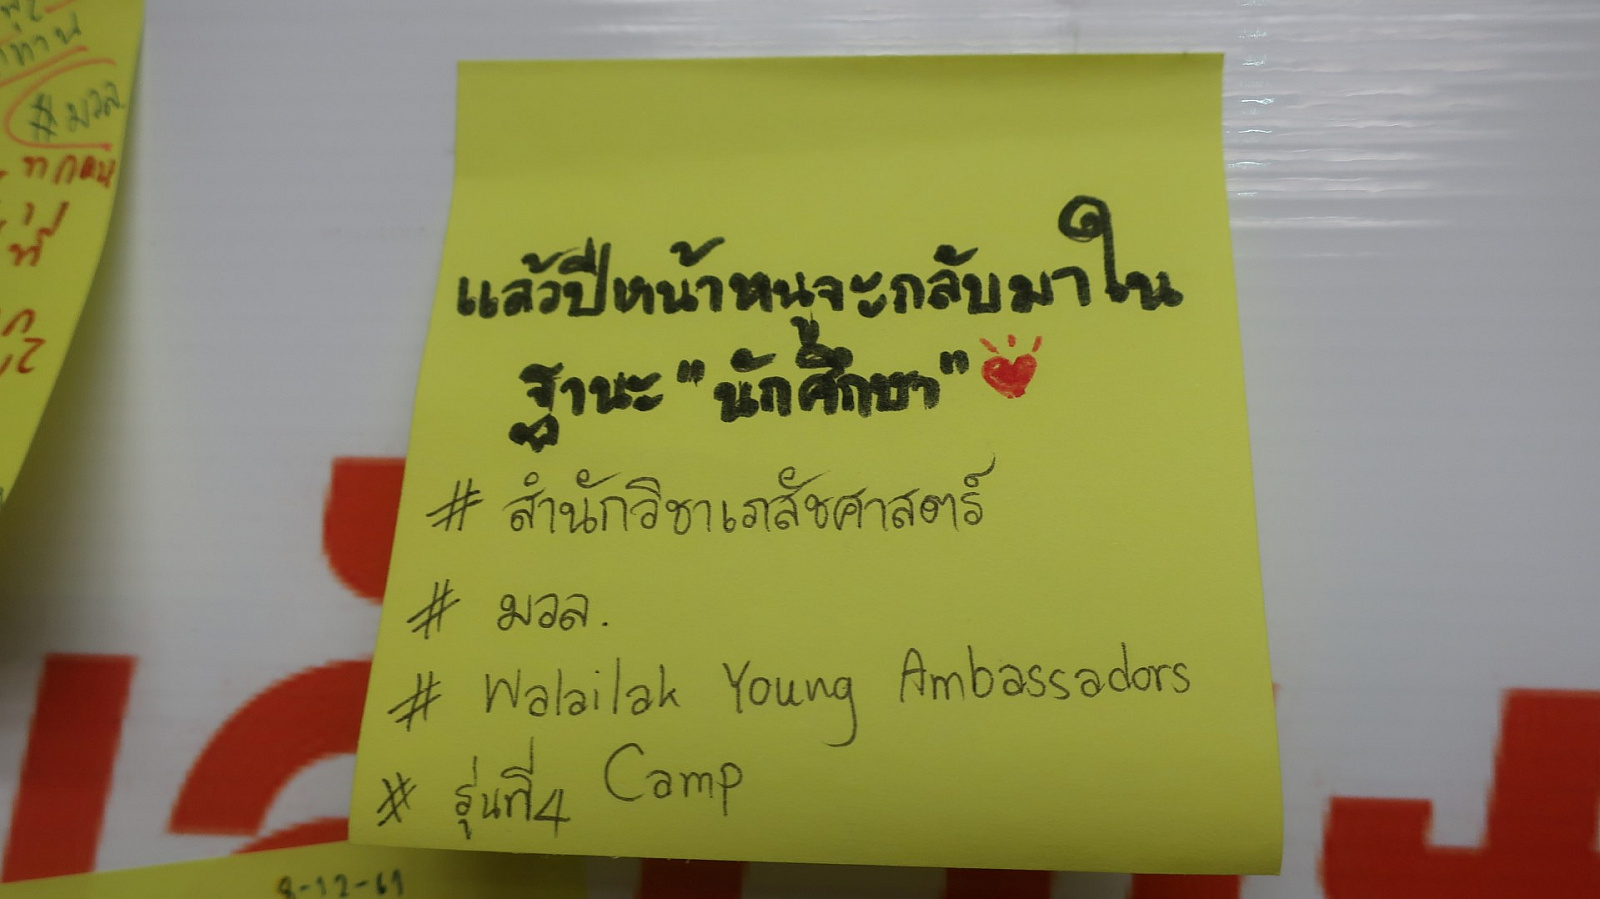 #มวล.
ทุกคน
ที่
แล้วปีหน้าหนูจะกลับมาใน
ฐานะ "นักศึกษา"
# สำนักวิชาเภสัชศาสตร์
# มวล.
# Walailak Young Ambassadors
Camp
# รุ่นที่4
8-12-61